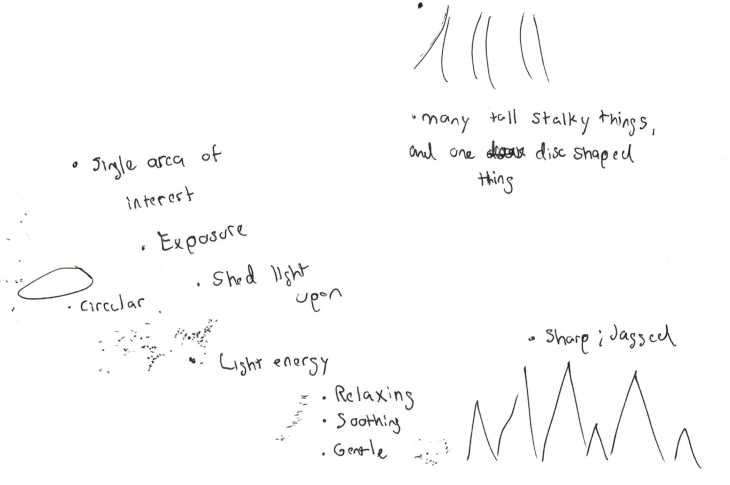 • many tall stalky things,
and one disc shaped
thing
• Single area of
interest
• Exposure
• Shed light
upon
• Circular
• Light energy
• Relaxing
• Soothing
• Gentle
• Sharp ; Jagged